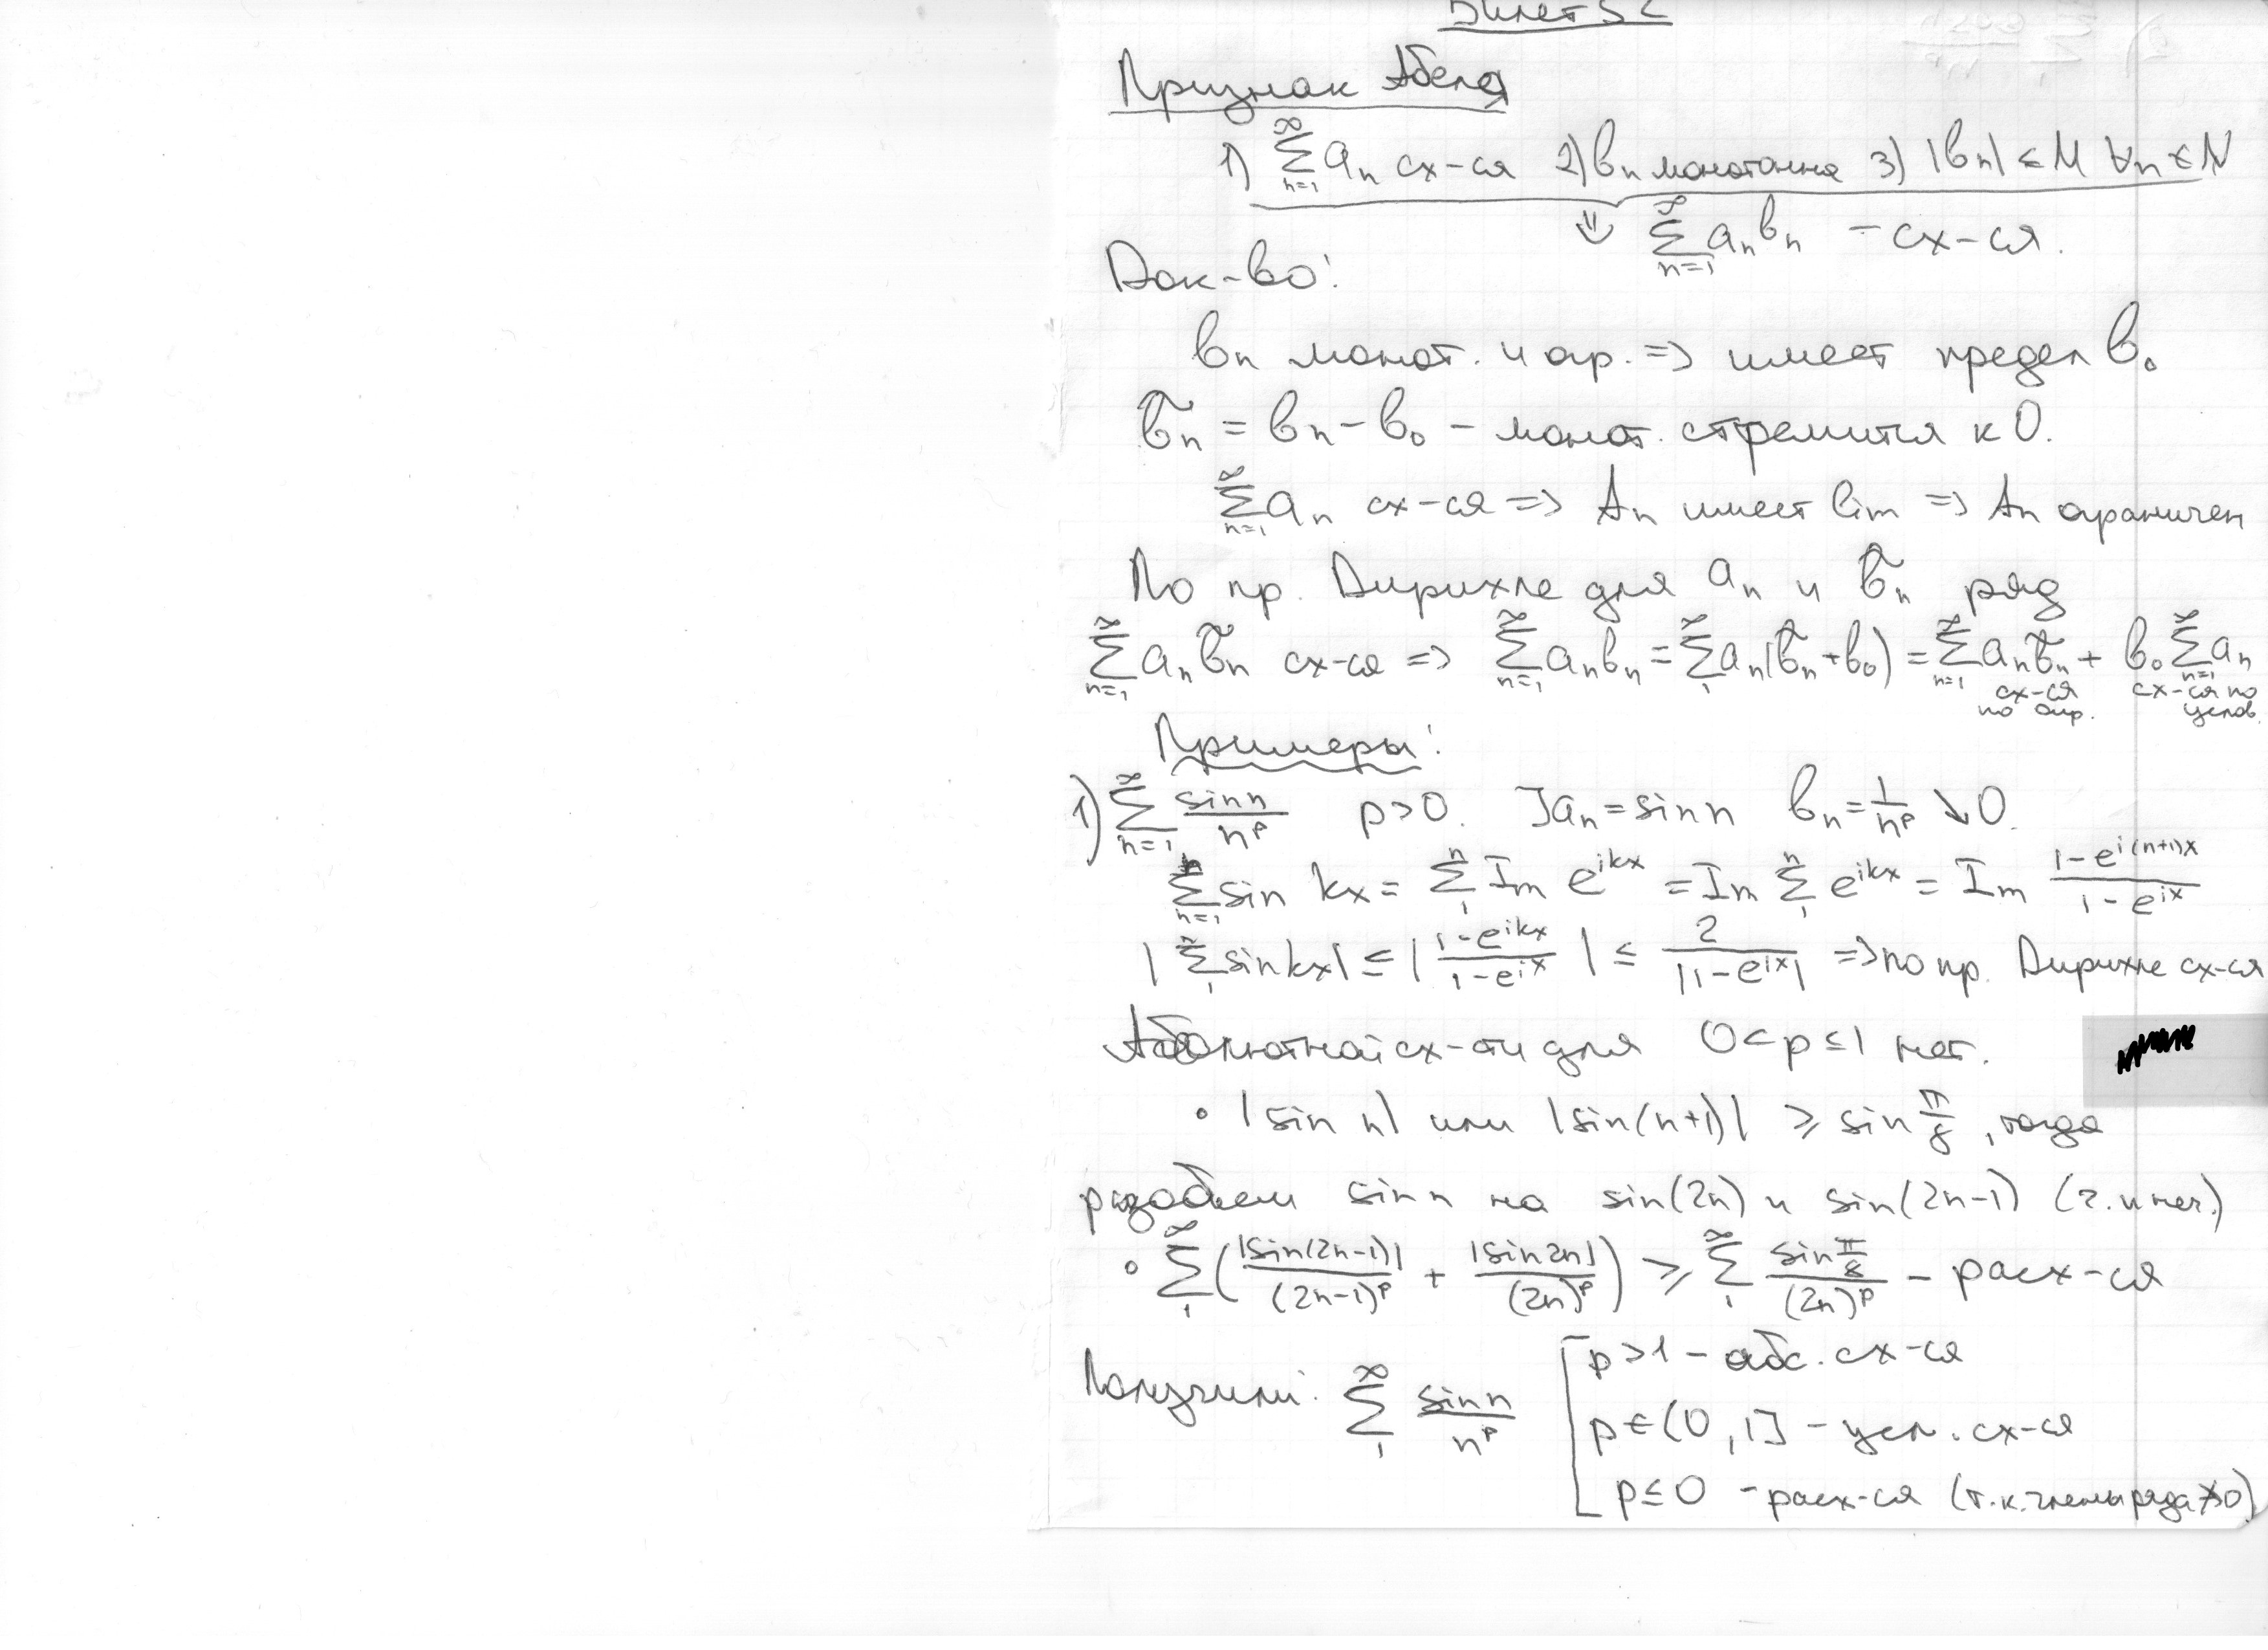 Билет 52
Признак Абеля
1) ∑_{n=1}^{∞} aₙ сх-ся 2) bₙ монотонна 3) |bₙ| ≤ M ∀n ∈ N
⇓ ∑_{n=1}^{∞} aₙbₙ - сх-ся.
Док-во:
bₙ монот. и огр. => имеет предел b₀
b̃ₙ = bₙ - b₀ - монот. стремится к 0.
∑_{n=1}^{∞} aₙ сх-ся => Aₙ имеет lim => Aₙ ограничен
По пр. Дирихле для aₙ и b̃ₙ ряд
∑_{n=1}^{∞} aₙb̃ₙ сх-ся => ∑_{n=1}^{∞} aₙbₙ = ∑_{1}^{∞} aₙ(b̃ₙ+b₀) = ∑_{n=1}^{∞} aₙb̃ₙ + b₀ ∑_{n=1}^{∞} aₙ
сх-ся по опр. сх-ся по услов.
Примеры:
1) ∑_{n=1}^{∞} sin n / n^p p>0. ]aₙ = sin n bₙ = 1/n^p ↘ 0.
∑_{n=1}^{n} sin kx = ∑_{1}^{n} Im e^{ikx} = Im ∑_{1}^{n} e^{ikx} = Im (1-e^{i(n+1)x})/(1-e^{ix})
|∑_{1}^{n} sin kx| ≤ |(1-e^{ikx})/(1-e^{ix})| ≤ 2/|1-e^{ix}| => по пр. Дирихле сх-ся
Абсолютной сх-ти для 0<p≤1 нет.
• |sin n| или |sin(n+1)| ≥ sin π/8, тогда
разобьем sin n на sin(2n) и sin(2n-1) (ч. и неч.)
• ∑_{1}^{∞} (|sin(2n-1)|/(2n-1)^p + |sin 2n|/(2n)^p) ≥ ∑_{1}^{∞} sin π/8 / (2n)^p - расх-ся
Получили: ∑_{1}^{∞} sin n / n^p [ p>1 - абс. сх-ся
p∈(0,1] - усл. сх-ся
p≤0 - расх-ся (т.к. члены ряда ↛0)